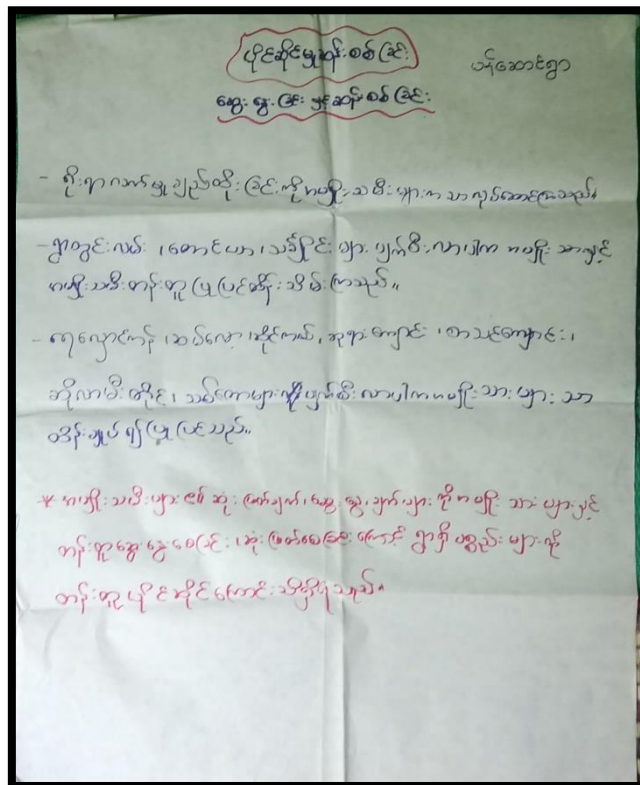 ပိုင်ဆိုင်မှုဆန်းစစ်ခြင်း
ပန်ဆောင်ရွာ
ဆွေးနွေးခြင်း နှင့်ဆန်းစစ်ခြင်း
- ရိုးရာယက်မှုချည်ထိုးခြင်းကိုအမျိုးသမီးများကသာလုပ်ဆောင်ကြသည်။
- ရွာတွင်းလမ်း၊တောင်ယာ၊သချိုင်းများပျက်စီးလာပါကအမျိုးသားနှင့်
အမျိုးသမီးတန်းတူပြုပြင်ထိန်းသိမ်းကြသည်။
- ရေလှောင်ကန်၊ဆပ်လော့၊ဆိုင်ကယ်၊ဘုရားကျောင်း၊စာသင်ကျောင်း၊
ဆိုလာမီးတိုင်၊သစ်တောများကိုပျက်စီးလာပါကအမျိုးသားများသာ
ထိန်းချုပ်၍ပြုပြင်သည်။
* အမျိုးသမီးများ၏ဆုံးဖြတ်ချက်၊ဆွေးနွေးချက်များကိုအမျိုးသားများနှင့်
တန်းတူဆွေးနွေးစေခြင်း၊ဆုံးဖြတ်စေခြင်းကြောင့် ရွာရှိပစ္စည်းများကို
တန်းတူပိုင်ဆိုင်ကြောင်းသိရှိရသည်။